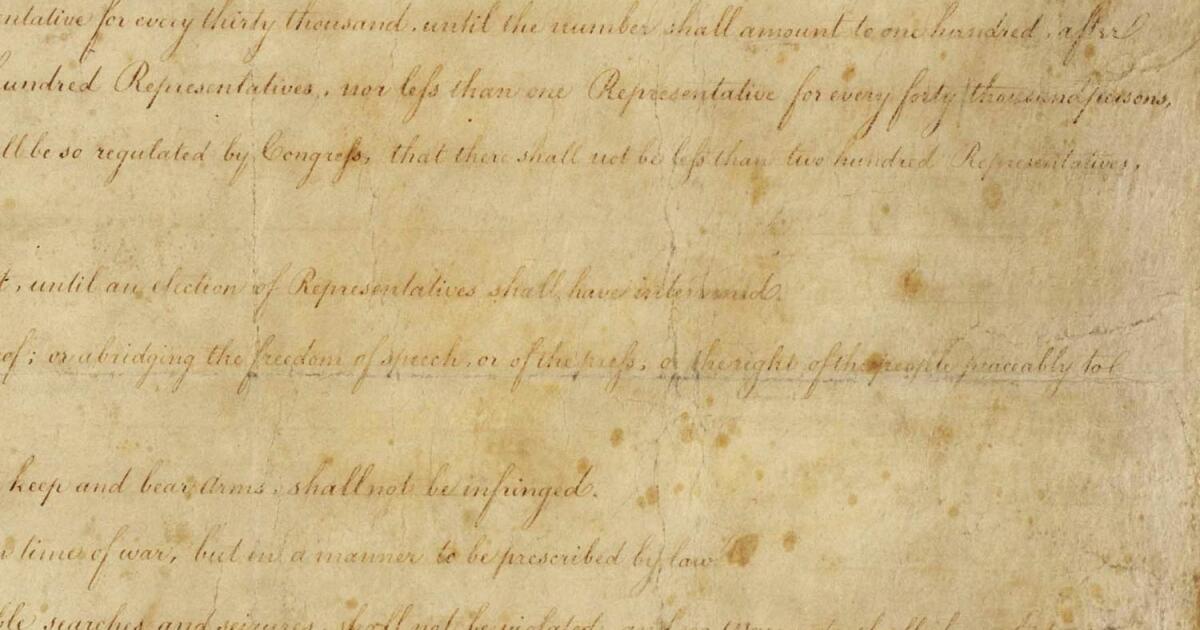 ntative for every thirty thousand, until the number shall amount to one hundred, after
undred Representatives, nor less than one Representative for every forty thousand persons,
ll be so regulated by Congress, that there shall not be less than two hundred Representatives,
t, until an election of Representatives shall have intervened.
of; or abridging the freedom of speech, or of the press; or the right of the people peaceably to
keep and bear Arms, shall not be infringed.
n time of war, but in a manner to be prescribed by law.
ble searches and seizures, shall not be violated, and no Warrants shall